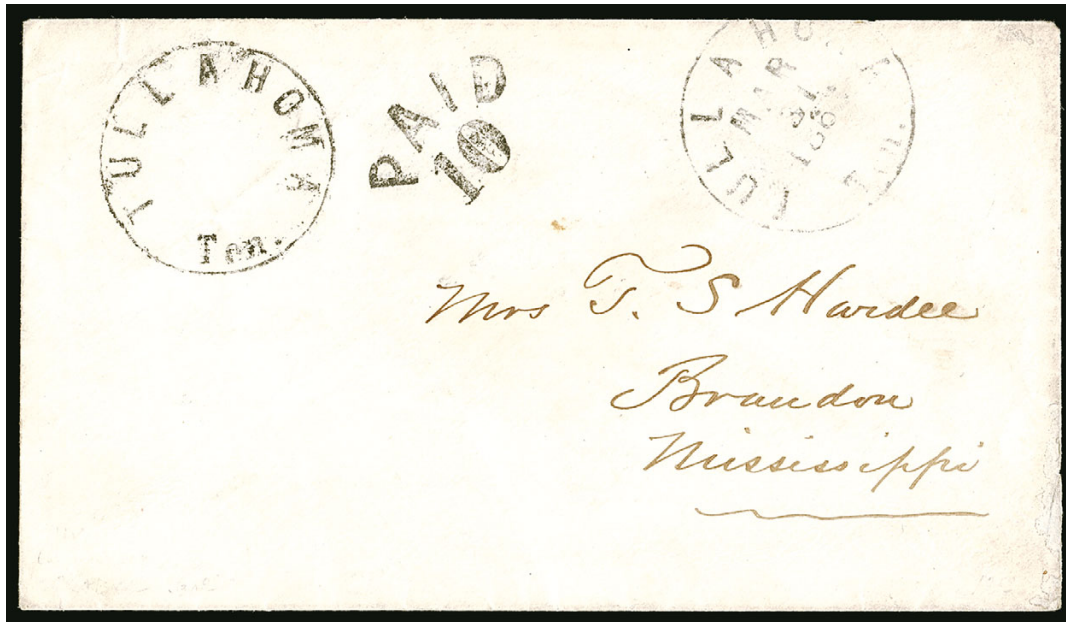 TULLAHOMA
Ten.
PAID
10
TULLAHOMA
MAR
Mrs T. S Hardee
Brandon
Mississippi